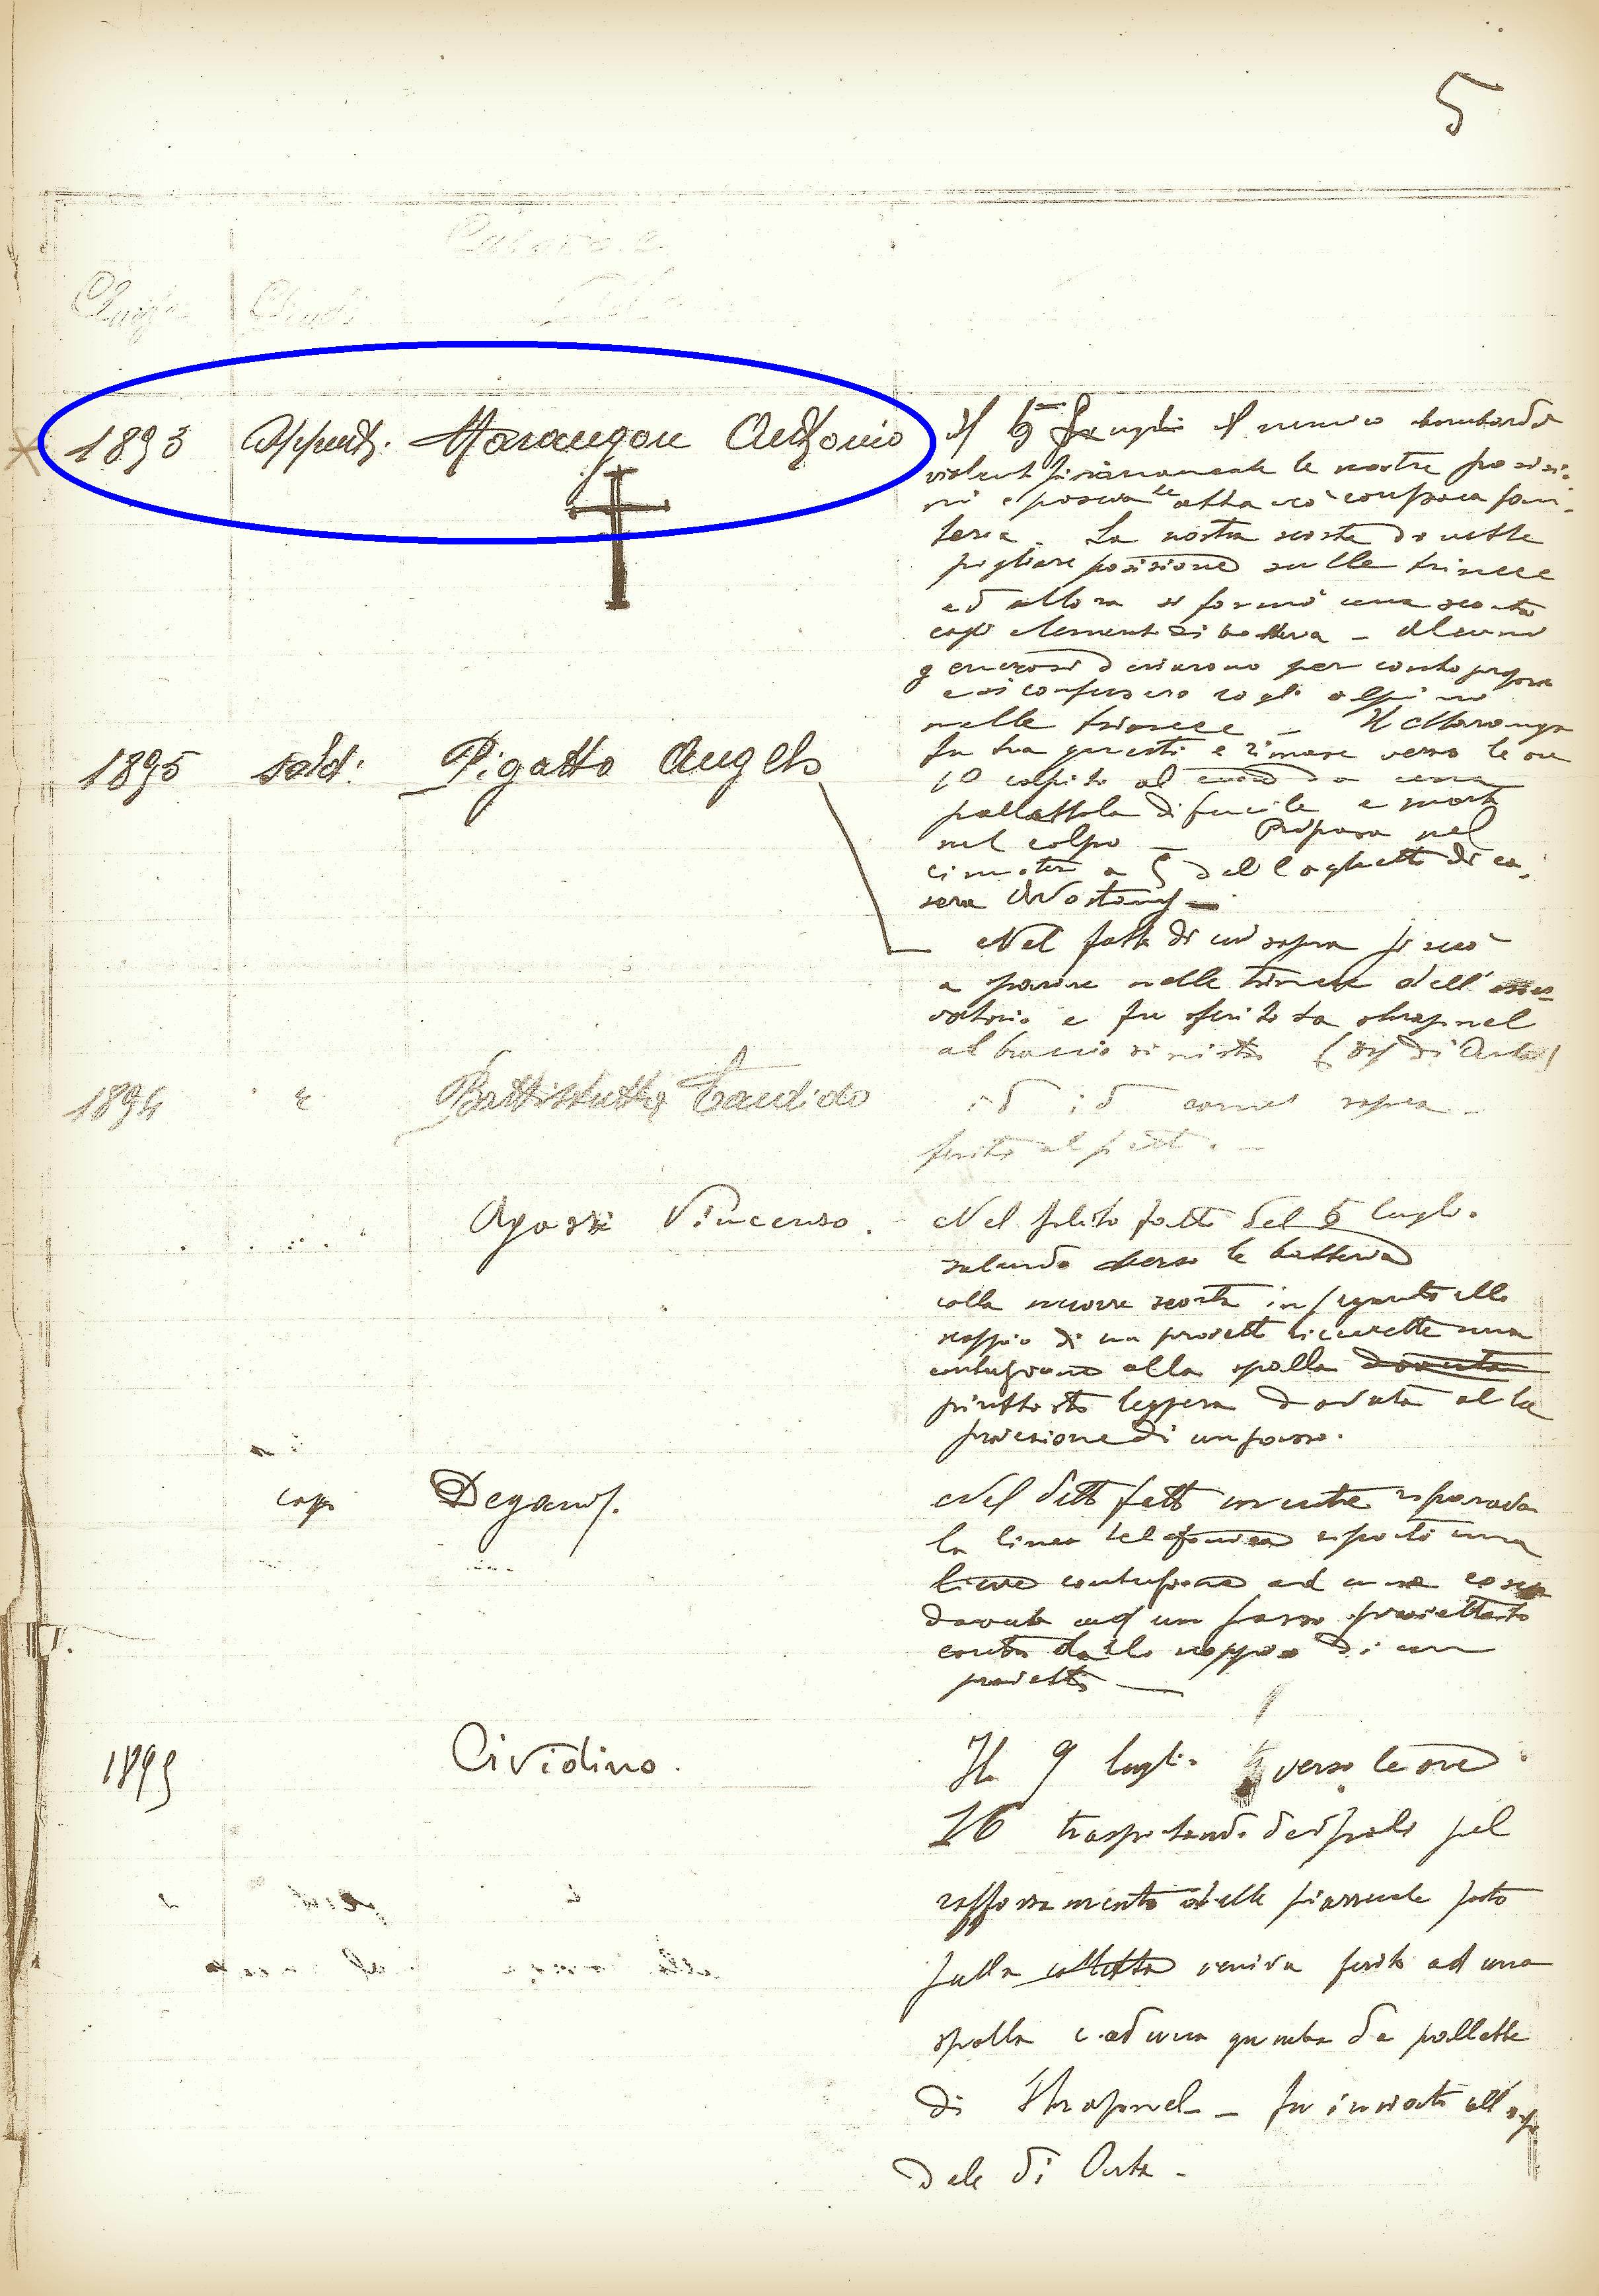 5
Classe
1893 Appunt. Marangon Antonio
Il 5 Luglio il nemico bombardò
violentissimamente le nostre posizio-
ni e poscia attaccò con poca fan-
teria. La nostra scorta dovette
pigliare posizione sulle trincee
ed allora si formò una scorta
cogli elementi di batteria - Alcuni
generosi deviarono per conto proprio
e si confusero cogli alpini
nelle trincee - Il Marangon
fu tra questi e rimase verso le ore
10 colpito al cuore da una
pallottola di fucile e morì
nel colpo - Riposa nel
cimitero a S del laghetto di ca-
sera
1895 sold: Pigatto Angelo
Nel fatto di cui sopra si recò
a sparare nelle trincee dell'osser-
vatorio e fu ferito da shrapnel
al braccio sinistro (osp di Arta)
1894 " Battistutta Candido
id id come sopra -
ferito al petto. -
Agosti Vincenzo.
Nel solito fatto del 5 luglio.
salendo verso le batterie
colla nuova scorta in seguito allo
scoppio di un proietto ricevette una
contusione alla spalla dovuta
piuttosto leggera dovuta alla
proiezione di un sasso.
cap Degani.
Nel detto fatto mentre riparava
la linea telefonica riportò una
lieve contusione ad una coscia
dovuta ad un sasso proiettato
contro dallo scoppio di un
proietto -
1895 Cividino.
Il 9 luglio verso le ore
16 trasportando dei pali pel
rafforzamento delle piazzuole poste
sulla colletta veniva ferito ad una
spalla e ad una gamba da pallette
di Shrapnel - fu inviato all'ospe
dale di Arta -